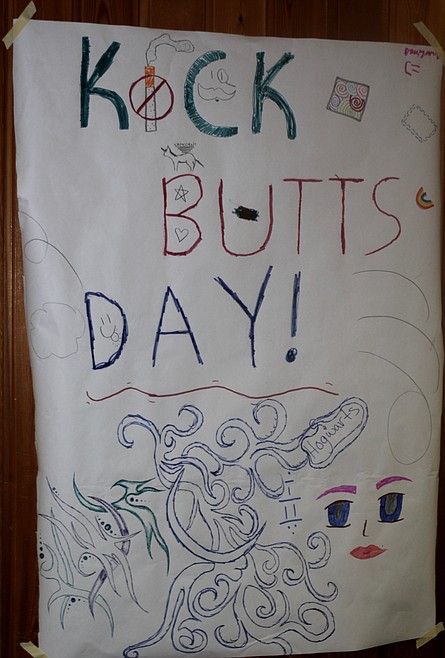 KICK
BUTTS
DAY!
Hogwarts